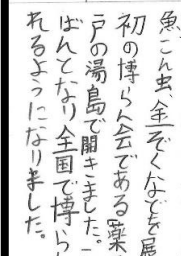 魚、こん虫、金ぞくなどを展
初の博らん会である「薬
戸の湯島で開きました。
ばんとなり全国で博ら
れるようになりました。